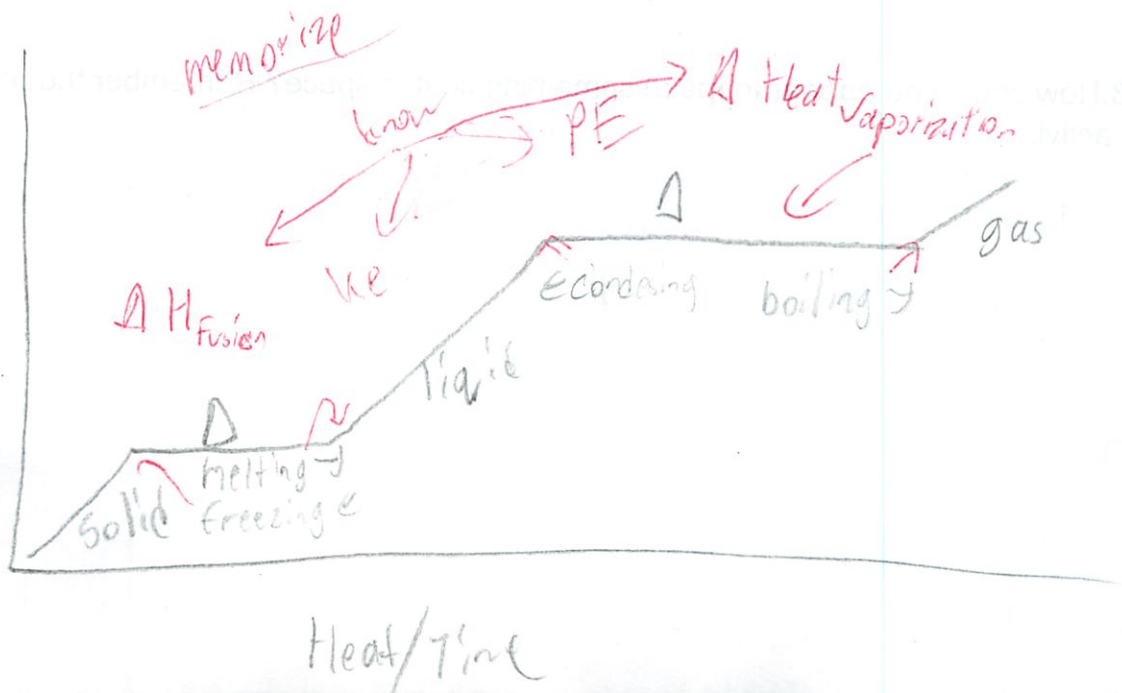 memorize
know
PE
Δ Heat vaporization
ke
Δ H Fusion
Δ
gas
← condesing
boiling →
liquid
Δ
melting →
freezing ←
Solid
Heat/Time